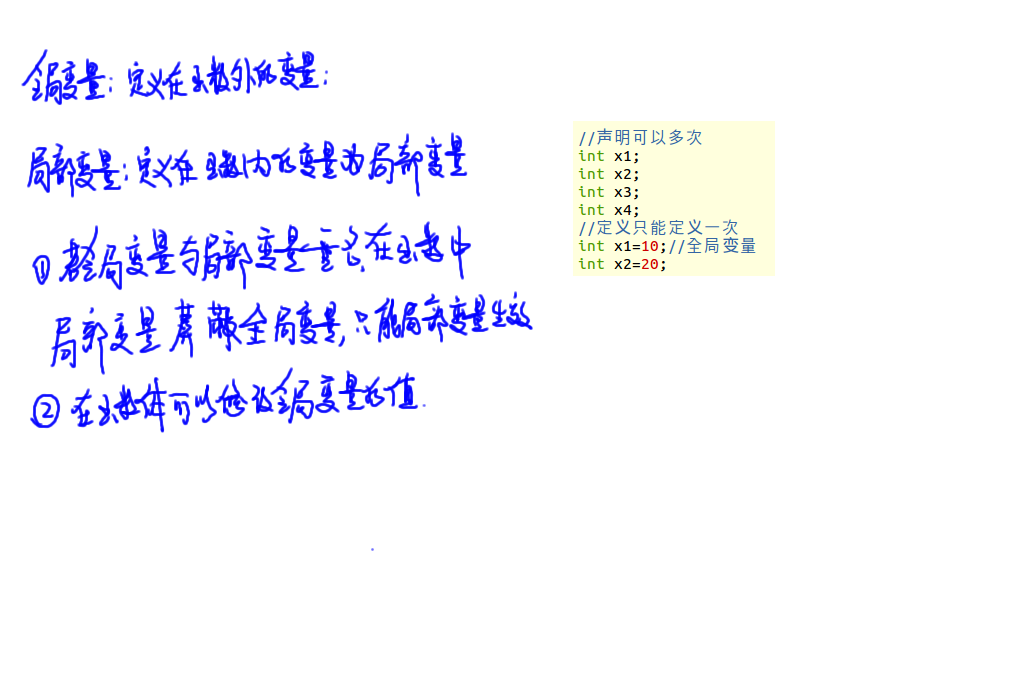 全局变量：定义在函数外的变量；
局部变量：定义在函数内的变量为局部变量
① 若全局变量与局部变量重名，在函数中
局部变量屏蔽全局变量，只能局部变量生效
② 在函数体可以修改全局变量的值.
//声明可以多次
int x1;
int x2;
int x3;
int x4;
//定义只能定义一次
int x1=10;//全局变量
int x2=20;